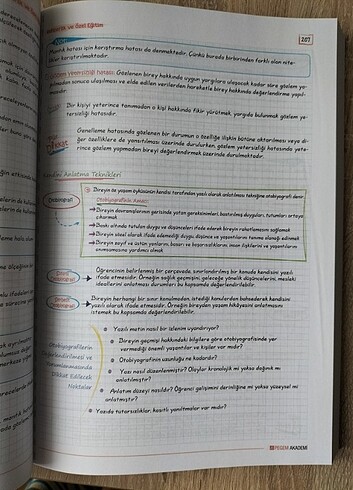 Rehberlik ve Özel Eğitim
207
Mantık hatası için karıştırma hatası da denmektedir. Çünkü burada birbirinden farklı olan nite-
likler karıştırılmaktadır.
Gözlem yetersizliği hatası: Gözlenen birey hakkında uygun yargılara ulaşacak kadar süre gözlem ya-
pılmadan sonuca ulaşılması ve elde edilen verilerden hareketle birey hakkında değerlendirme yapıl-
masıdır.
Bir kişiyi yeterince tanımadan o kişi hakkında fikir yürütmek, yargıda bulunmak gözlem ye-
tersizliği hatasıdır.
Dikkat
Genelleme hatasında gözlenen bir durumun o özelliğe ilişkin bütüne aktarılması veya di-
ğer özelliklere de yansıtılması üzerinde durulurken, gözlem yetersizliği hatasında yete-
rince gözlem yapmadan bireyi değerlendirmek üzerinde durulmaktadır.
Kendini Anlatma Teknikleri
Otobiyografi
Bireyin de yaşam öyküsünün kendisi tarafından yazılı olarak anlatılması tekniğine otobiyografi denir.
Otobiyografinin Amacı:
Bireyin davranışlarının gerisinde yatan gereksinimleri, bastırılmış duyguları, tutumları ortaya
çıkarmak
Bunlar altında tutulan duygu ve düşünceleri ifade ederek bireyin rahatlamasını sağlamak
Bireyin sözel olarak ifade edemediği duygu, düşünce ve yaşantılarını tanıma olanağı edinmek
Bireyin zayıf ve üstün yanlarını, başarı ve başarısızlıklarını, insan ilişkilerini ve yaşantılarını
anımsamasına yardımcı olmak
Öğrencinin belirlenmiş bir çerçevede, sınırlandırılmış bir konuda kendisini yazılı
ifade etmesidir. Örneğin sağlık geçmişini, geleceğe yönelik düşüncelerini, mesleki
ideallerini anlatması durumları bu kapsamda değerlendirilebilir.
Bireyin herhangi bir sınır konulmadan, istediği konulardan bahsederek kendisini
yazılı olarak ifade etmesidir. Örneğin bireyden yaşam hikâyesini anlatmasını
istemek bu kapsamda değerlendirilebilir.
Otobiyografilerin
Değerlendirilmesi ve
Yorumlanmasında
Dikkat Edilecek
Noktalar
Yazılı metin nasıl bir izlenim uyandırıyor?
Bireyin geçmişi hakkındaki bilgilere göre otobiyografisinde yer
vermediği önemli yaşantılar ve kişiler var mıdır?
Otobiyografinin uzunluğu ne kadardır?
Yazı nasıl düzenlenmiştir? Olaylar kronolojik mi yoksa dağınık mı
anlatılmıştır?
Anlatım düzeyi nasıldır? Öğrenci gelişimini derinliğine mi yoksa yüzeysel mi
anlatmıştır?
Yazıda tutarsızlıklar, kasıtlı yanıltmalar var mıdır?
PEGEM AKADEMİ